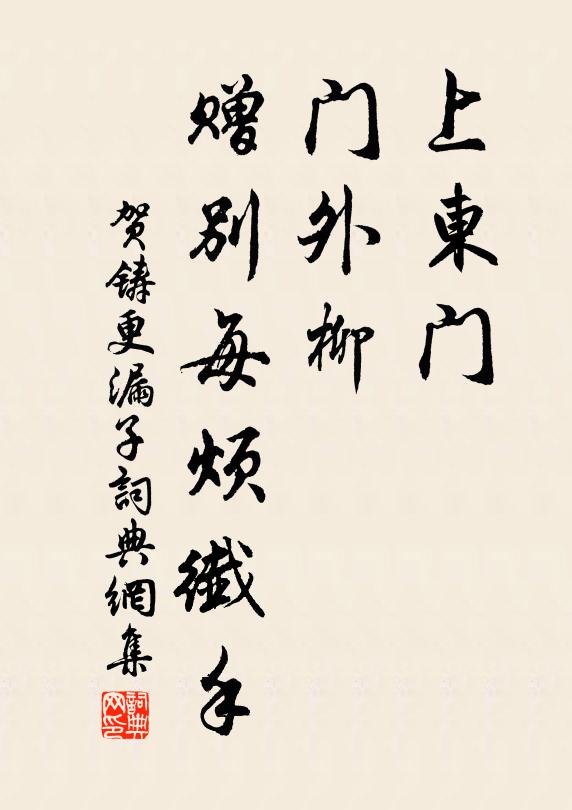 上東门
门外柳
赠别每烦纖手
贺鑄更漏子詞典網集
詞典网印